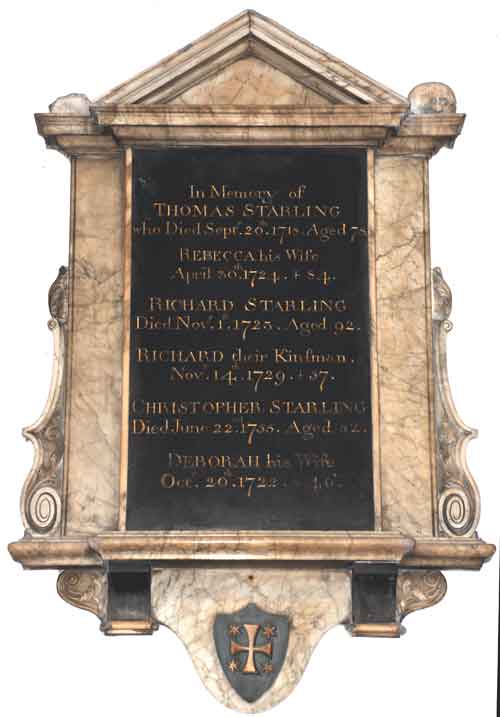 In Memory of
THOMAS STARLING
who Died Septr. 20th. 1718. Aged 78
REBECCA his Wife
April 30th 1724. + 84.
RICHARD STARLING
Died Novr. 1. 1723. Aged 92.
RICHARD their Kinsman.
Novr. 14th. 1729. + 37.
CHRISTOPHER STARLING
Died June 22. 1755. Aged
DEBORAH his Wife
Oct. 20th. 1722. + 46.